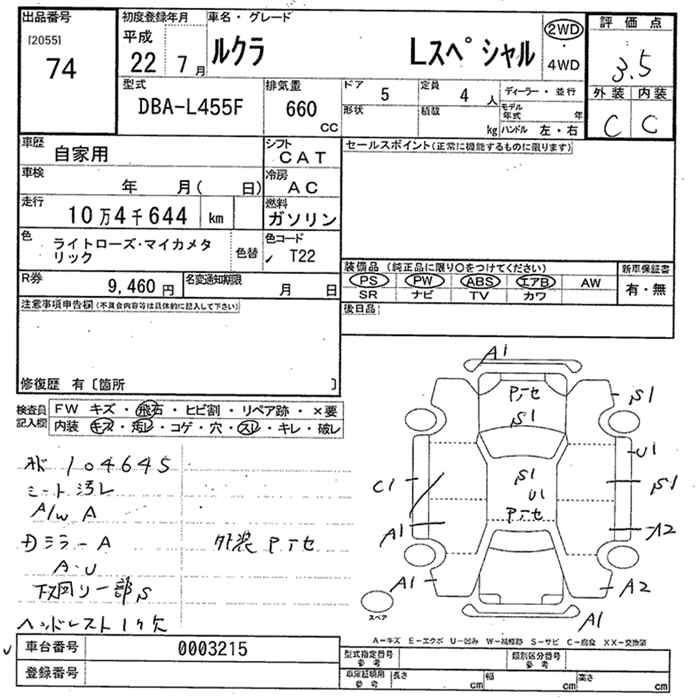 出品番号
[2055]
74
初度登録年月
平成
22 7月
車名・グレード
ルクラ Lスペシャル
2WD
・
4WD
評価点
3.5
外装 内装
C C
型式
DBA-L455F
排気量
660
CC
ドア 5
定員 4 人
ディーラー・並行
形状
積載 kg
モデル年式 年
ハンドル 左・右
車歴
自家用
シフト
CAT
車検
年 月( 日)
冷房
AC
走行
10万4千644 km
燃料
ガソリン
色
ライトローズ・マイカメタリック
色替
色コード
T22
R券
9,460円
名変通知期限
月 日
セールスポイント(正常に機能するものに限ります)
装備品 (純正品に限り○をつけてください)
PS PW ABS エアB AW
SR ナビ TV カワ
新車保証書
有・無
後日品
注意事項申告欄(不具合内容等は具体的に記入して下さい)
修復歴 有〔箇所 〕
検査員記入欄
FW キズ・飛石・ヒビ割・リペア跡・×要
内装 キズ・汚レ・コゲ・穴・スレ・キレ・破レ
104645
シート汚レ
A/W A
ミラーA
A・U
下回り一部S
ヘッドレスト1ケ欠
外装 PTセ
A1
PTセ
S1
S1
U1
S1
S1
U1
PTセ
C1
A1
A2
A1
A2
A1
スペア
A－キズ E－エクボ U－凹み W－補修跡 S－サビ C－腐食 XX－交換済
車台番号
0003215
登録番号
型式指定番号
参考
類別区分番号
参考
車庫証明用
参考
長さ cm
幅 cm
高さ cm